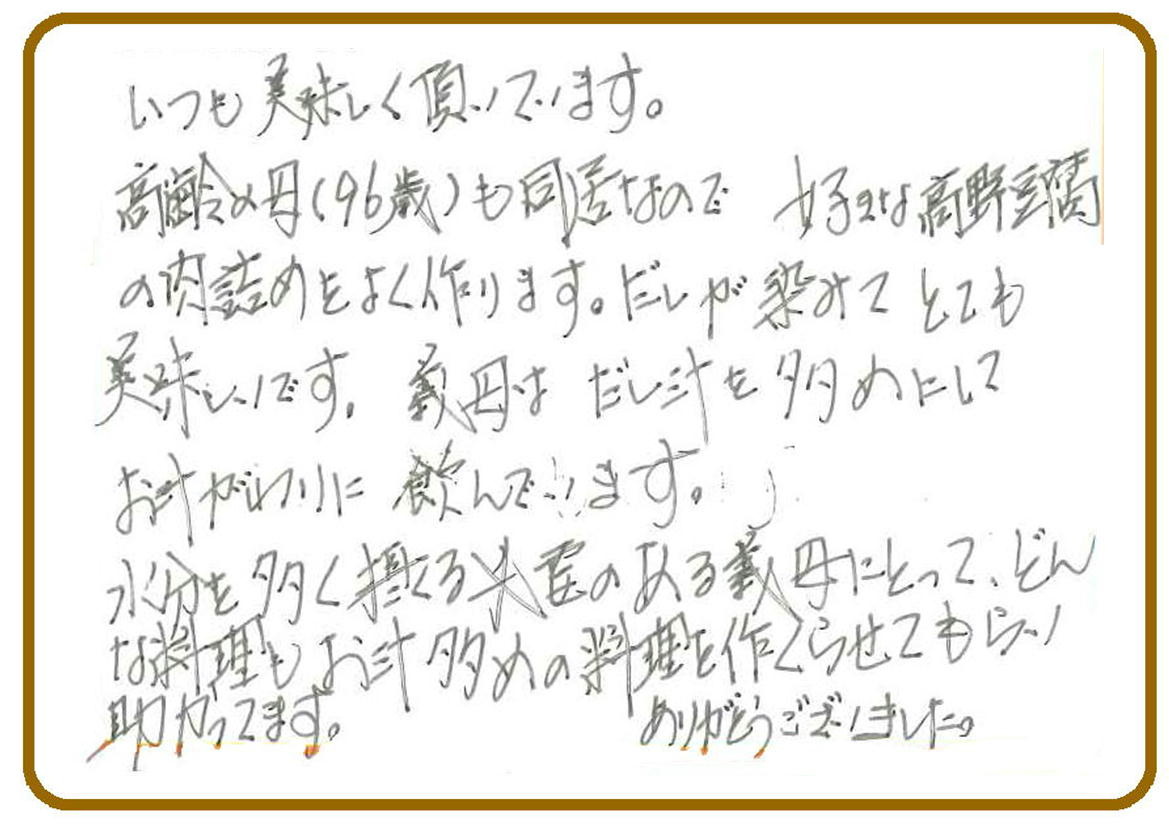 いつも美味しく頂いています。
高齢の母(96歳)も同居なので 好きな高野豆腐
の肉詰めをよく作ります。だしが染みてとても
美味しいです。義母はだし汁を多めにして
お汁がわりに飲んでいます。
水分を多く摂る必要のある義母にとって、どん
な料理もお汁多めの料理を作くらせてもらい
助かってます。 ありがとうございました。